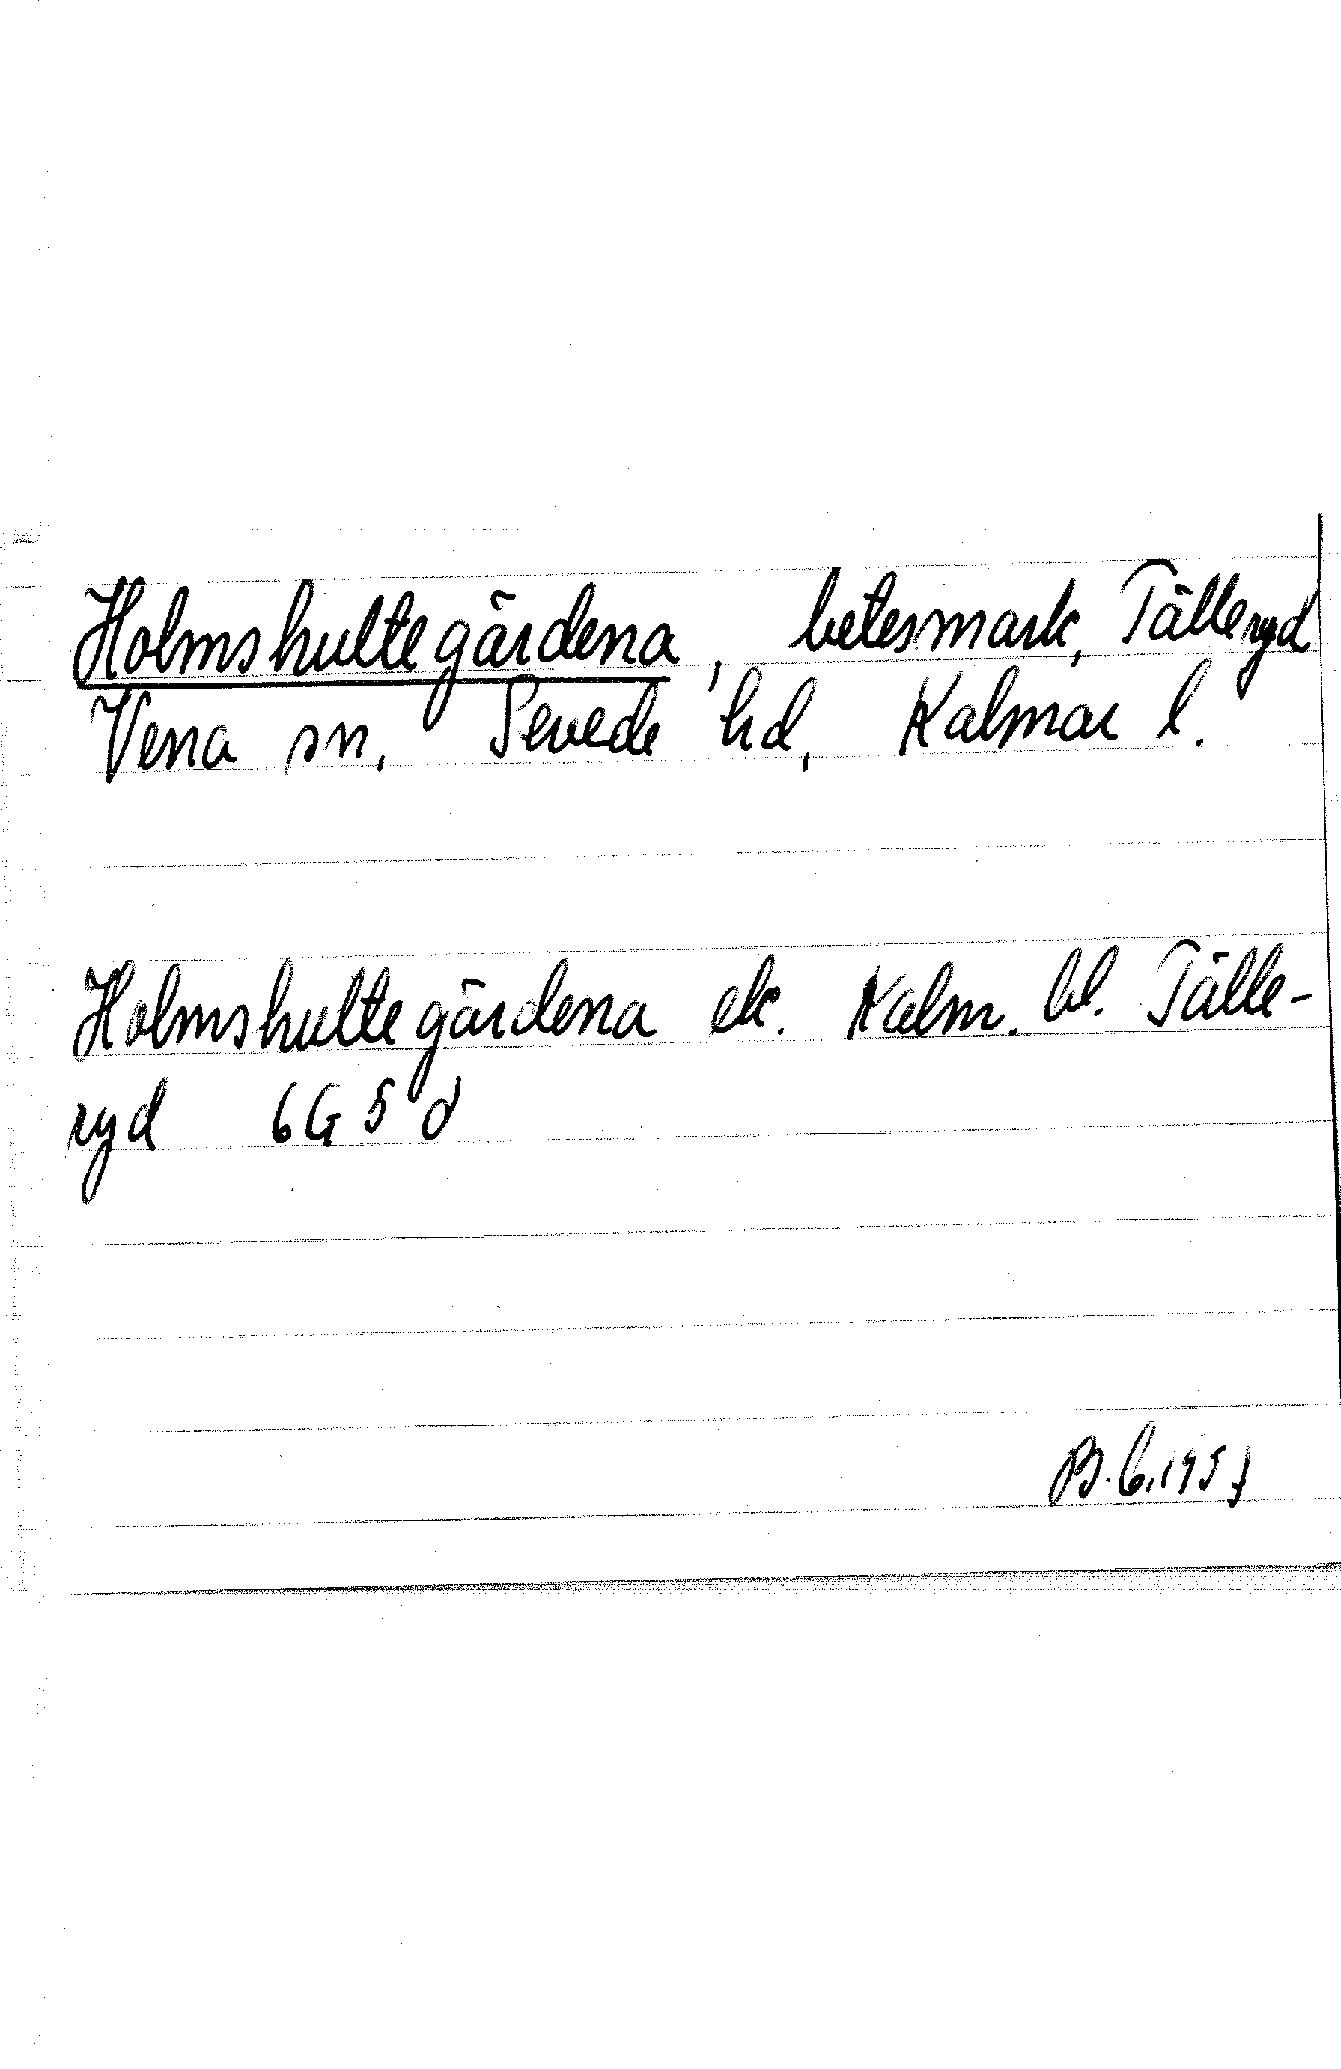 Holmshultegärdena, betesmark, Tälleryd
Vena sn, Sevede hd, Kalmar l.
Holmshultegärdena ek. Kalm. bl. Tälle-
ryd 6G 5 d
B. G. 1957